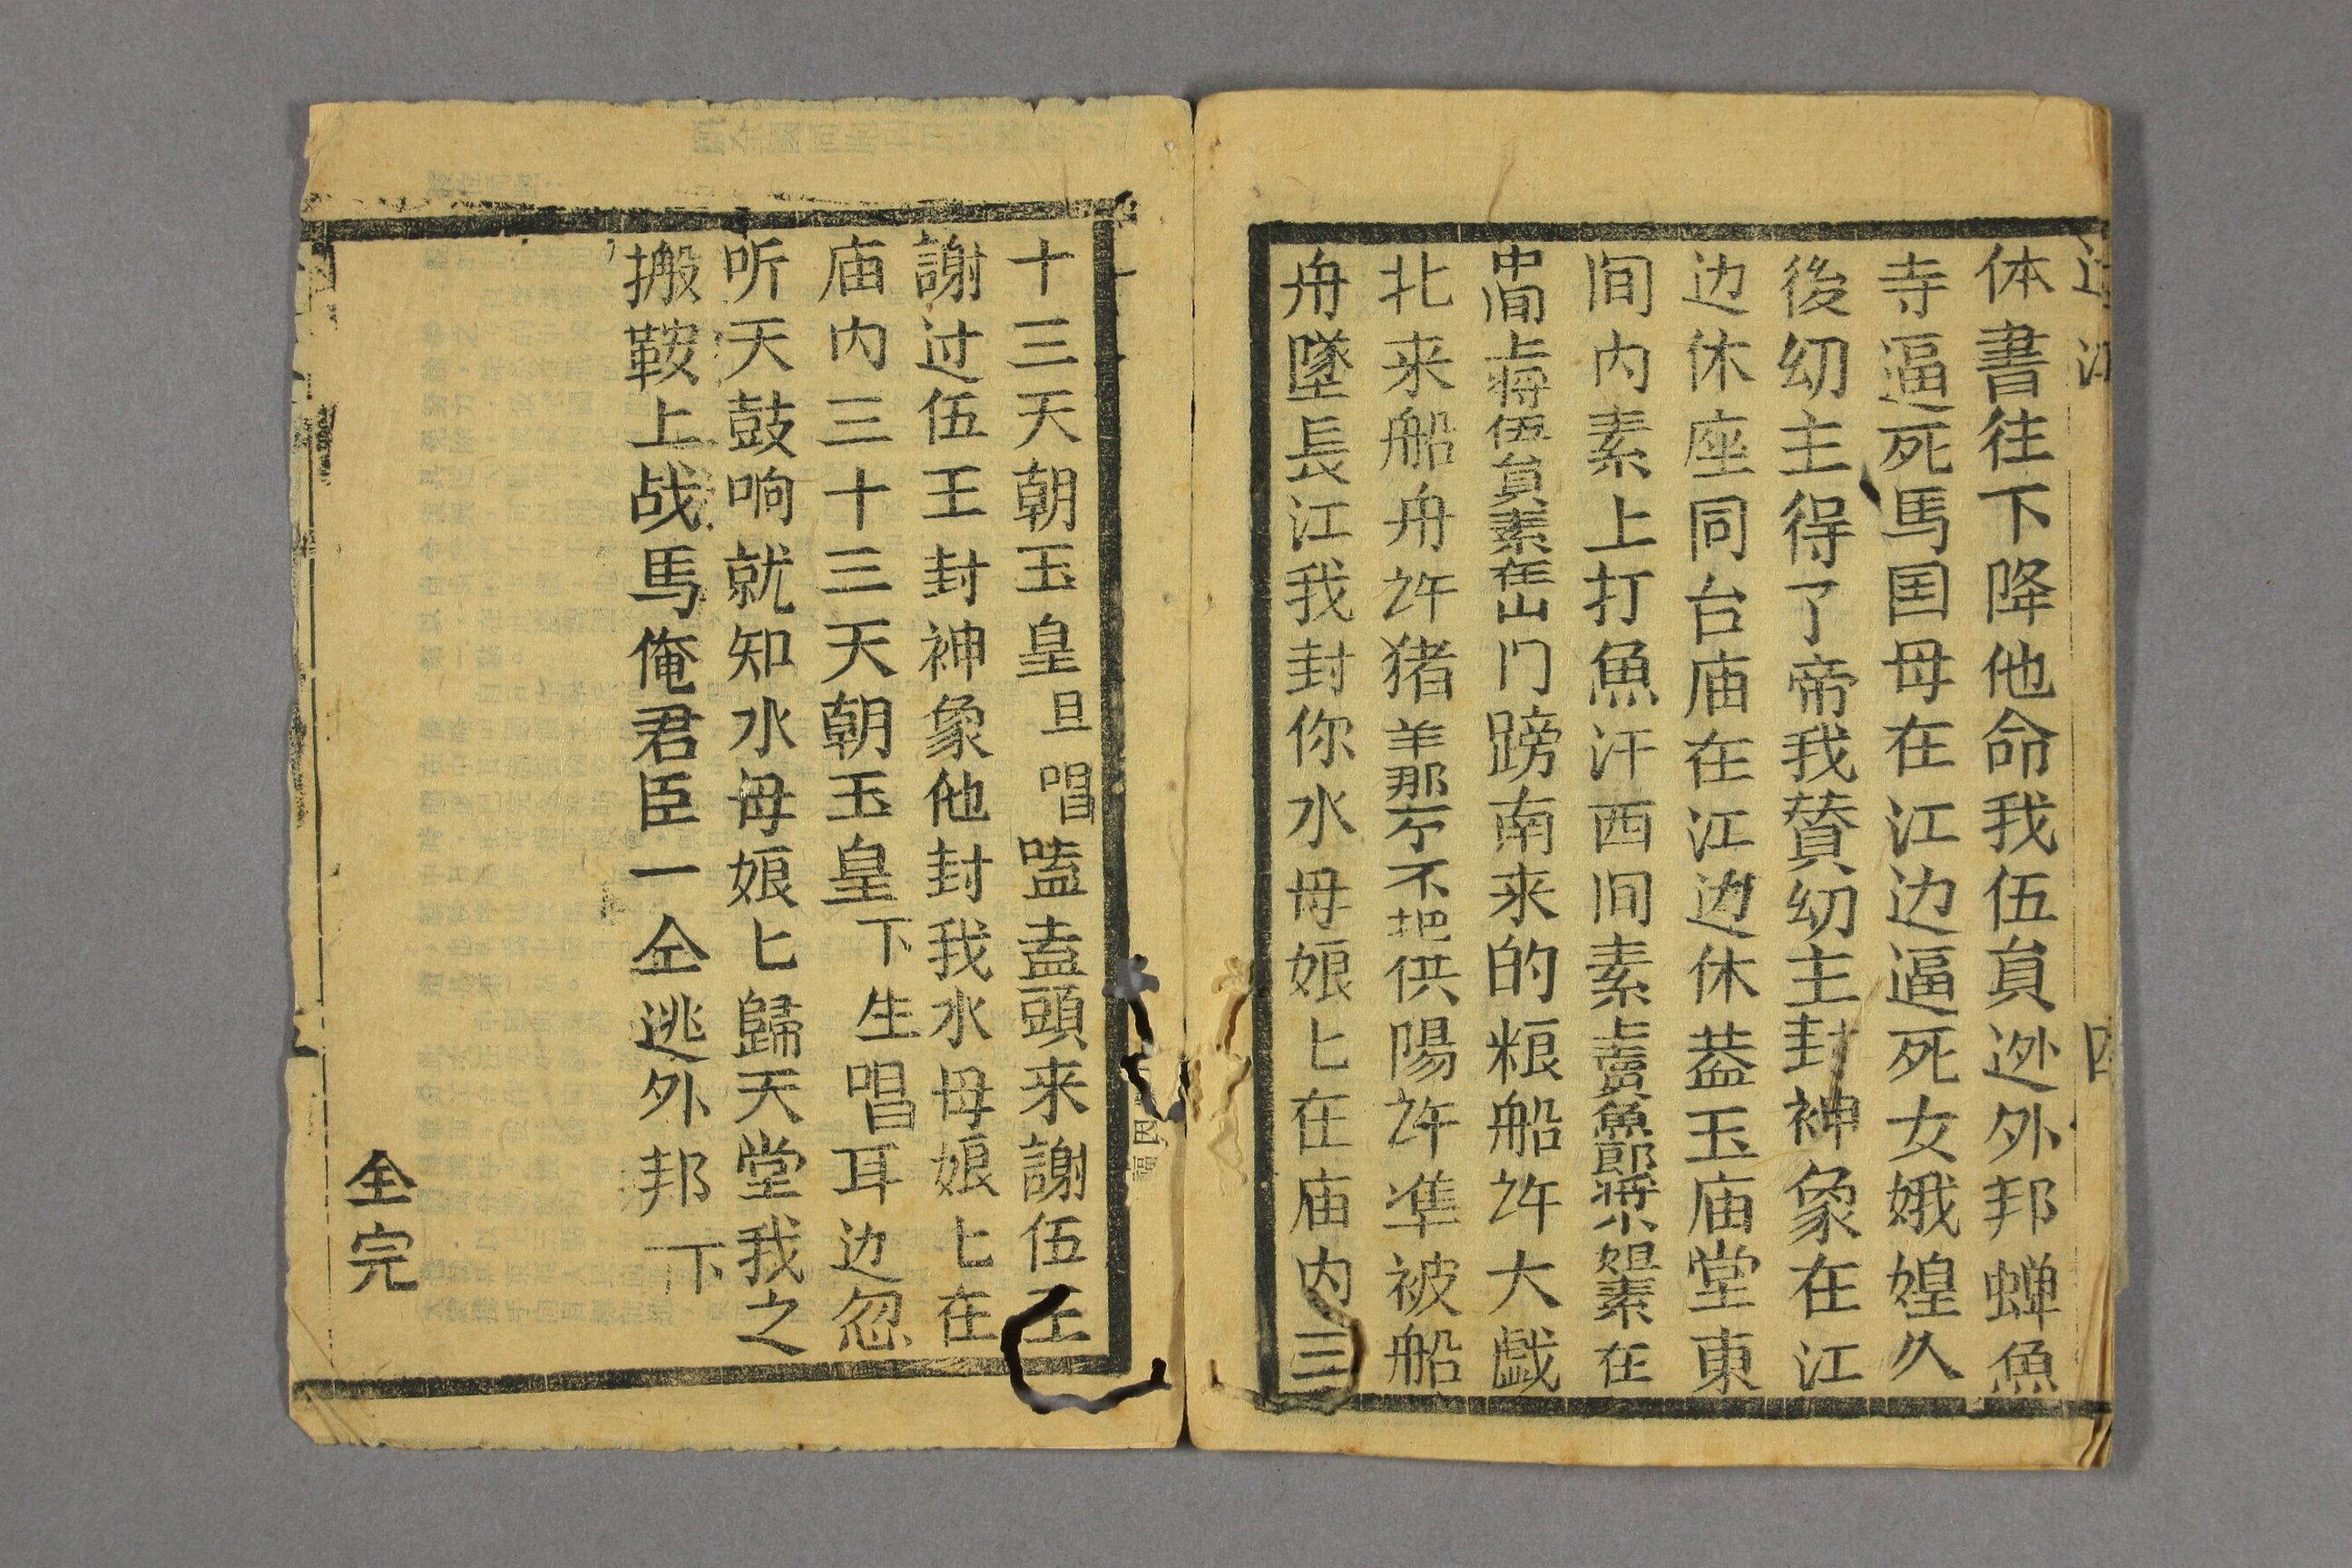 体書往下降他命我伍員迯外邦蝉魚
寺逼死馬囯母在江边逼死女娥媓久
後幼主得了帝我賛幼主封神象在江
边休座同台庙在江边休蓋玉庙堂東
间内素上打魚汗西间素上賣魚郎将小娘素在
中间上将伍員素在山门膀南来的粮船许大戯
北来船舟许猪羊那个不把供陽许準被船
舟墜長江我封你水母娘匕在庙内三
十三天朝玉皇旦唱嗑盍頭来謝伍王
謝过伍王封神象他封我水母娘匕在
庙内三十三天朝玉皇下生唱耳边忽
听天鼓响就知水母娘匕歸天堂我之
搬鞍上战馬俺君臣一仝逃外邦下
全完